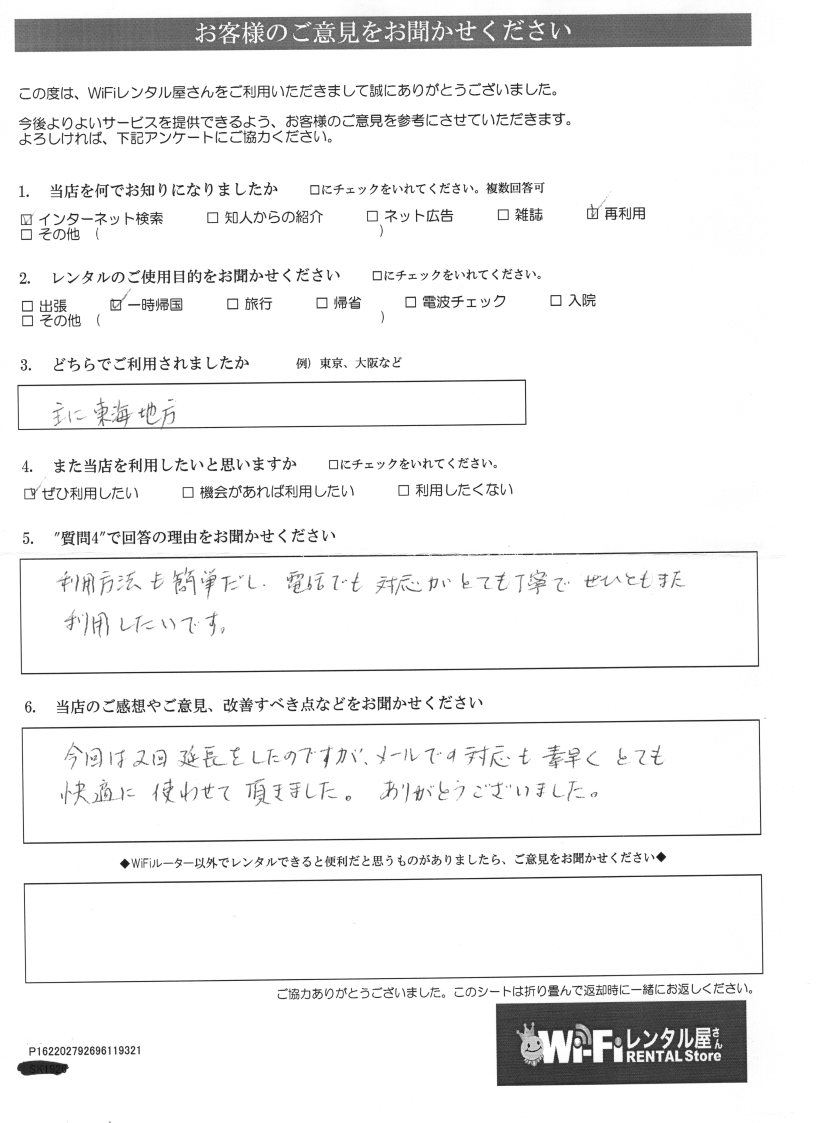 お客様のご意見をお聞かせください
この度は、WiFiレンタル屋さんをご利用いただきまして誠にありがとうございました。
今後よりよいサービスを提供できるよう、お客様のご意見を参考にさせていただきます。
よろしければ、下記アンケートにご協力ください。
1. 当店を何でお知りになりましたか □にチェックをいれてください。複数回答可
☑ インターネット検索 □ 知人からの紹介 □ ネット広告 □ 雑誌 ☑ 再利用
□ その他 ( )
2. レンタルのご使用目的をお聞かせください □にチェックをいれてください。
□ 出張 ☑ 一時帰国 □ 旅行 □ 帰省 □ 電波チェック □ 入院
□ その他 ( )
3. どちらでご利用されましたか 例）東京、大阪など
主に東海地方
4. また当店を利用したいと思いますか □にチェックをいれてください。
☑ ぜひ利用したい □ 機会があれば利用したい □ 利用したくない
5. "質問4"で回答の理由をお聞かせください
利用方法も簡単だし、電話でも対応がとても丁寧でぜひともまた
利用したいです。
6. 当店のご感想やご意見、改善すべき点などをお聞かせください
今回は2回延長をしたのですが、メールでの対応も素早くとても
快適に使わせて頂きました。ありがとうございました。
◆WiFiルーター以外でレンタルできると便利だと思うものがありましたら、ご意見をお聞かせください◆
ご協力ありがとうございました。このシートは折り畳んで返却時に一緒にお返しください。
P162202792696119321
Wi-Fiレンタル屋さん
RENTAL Store